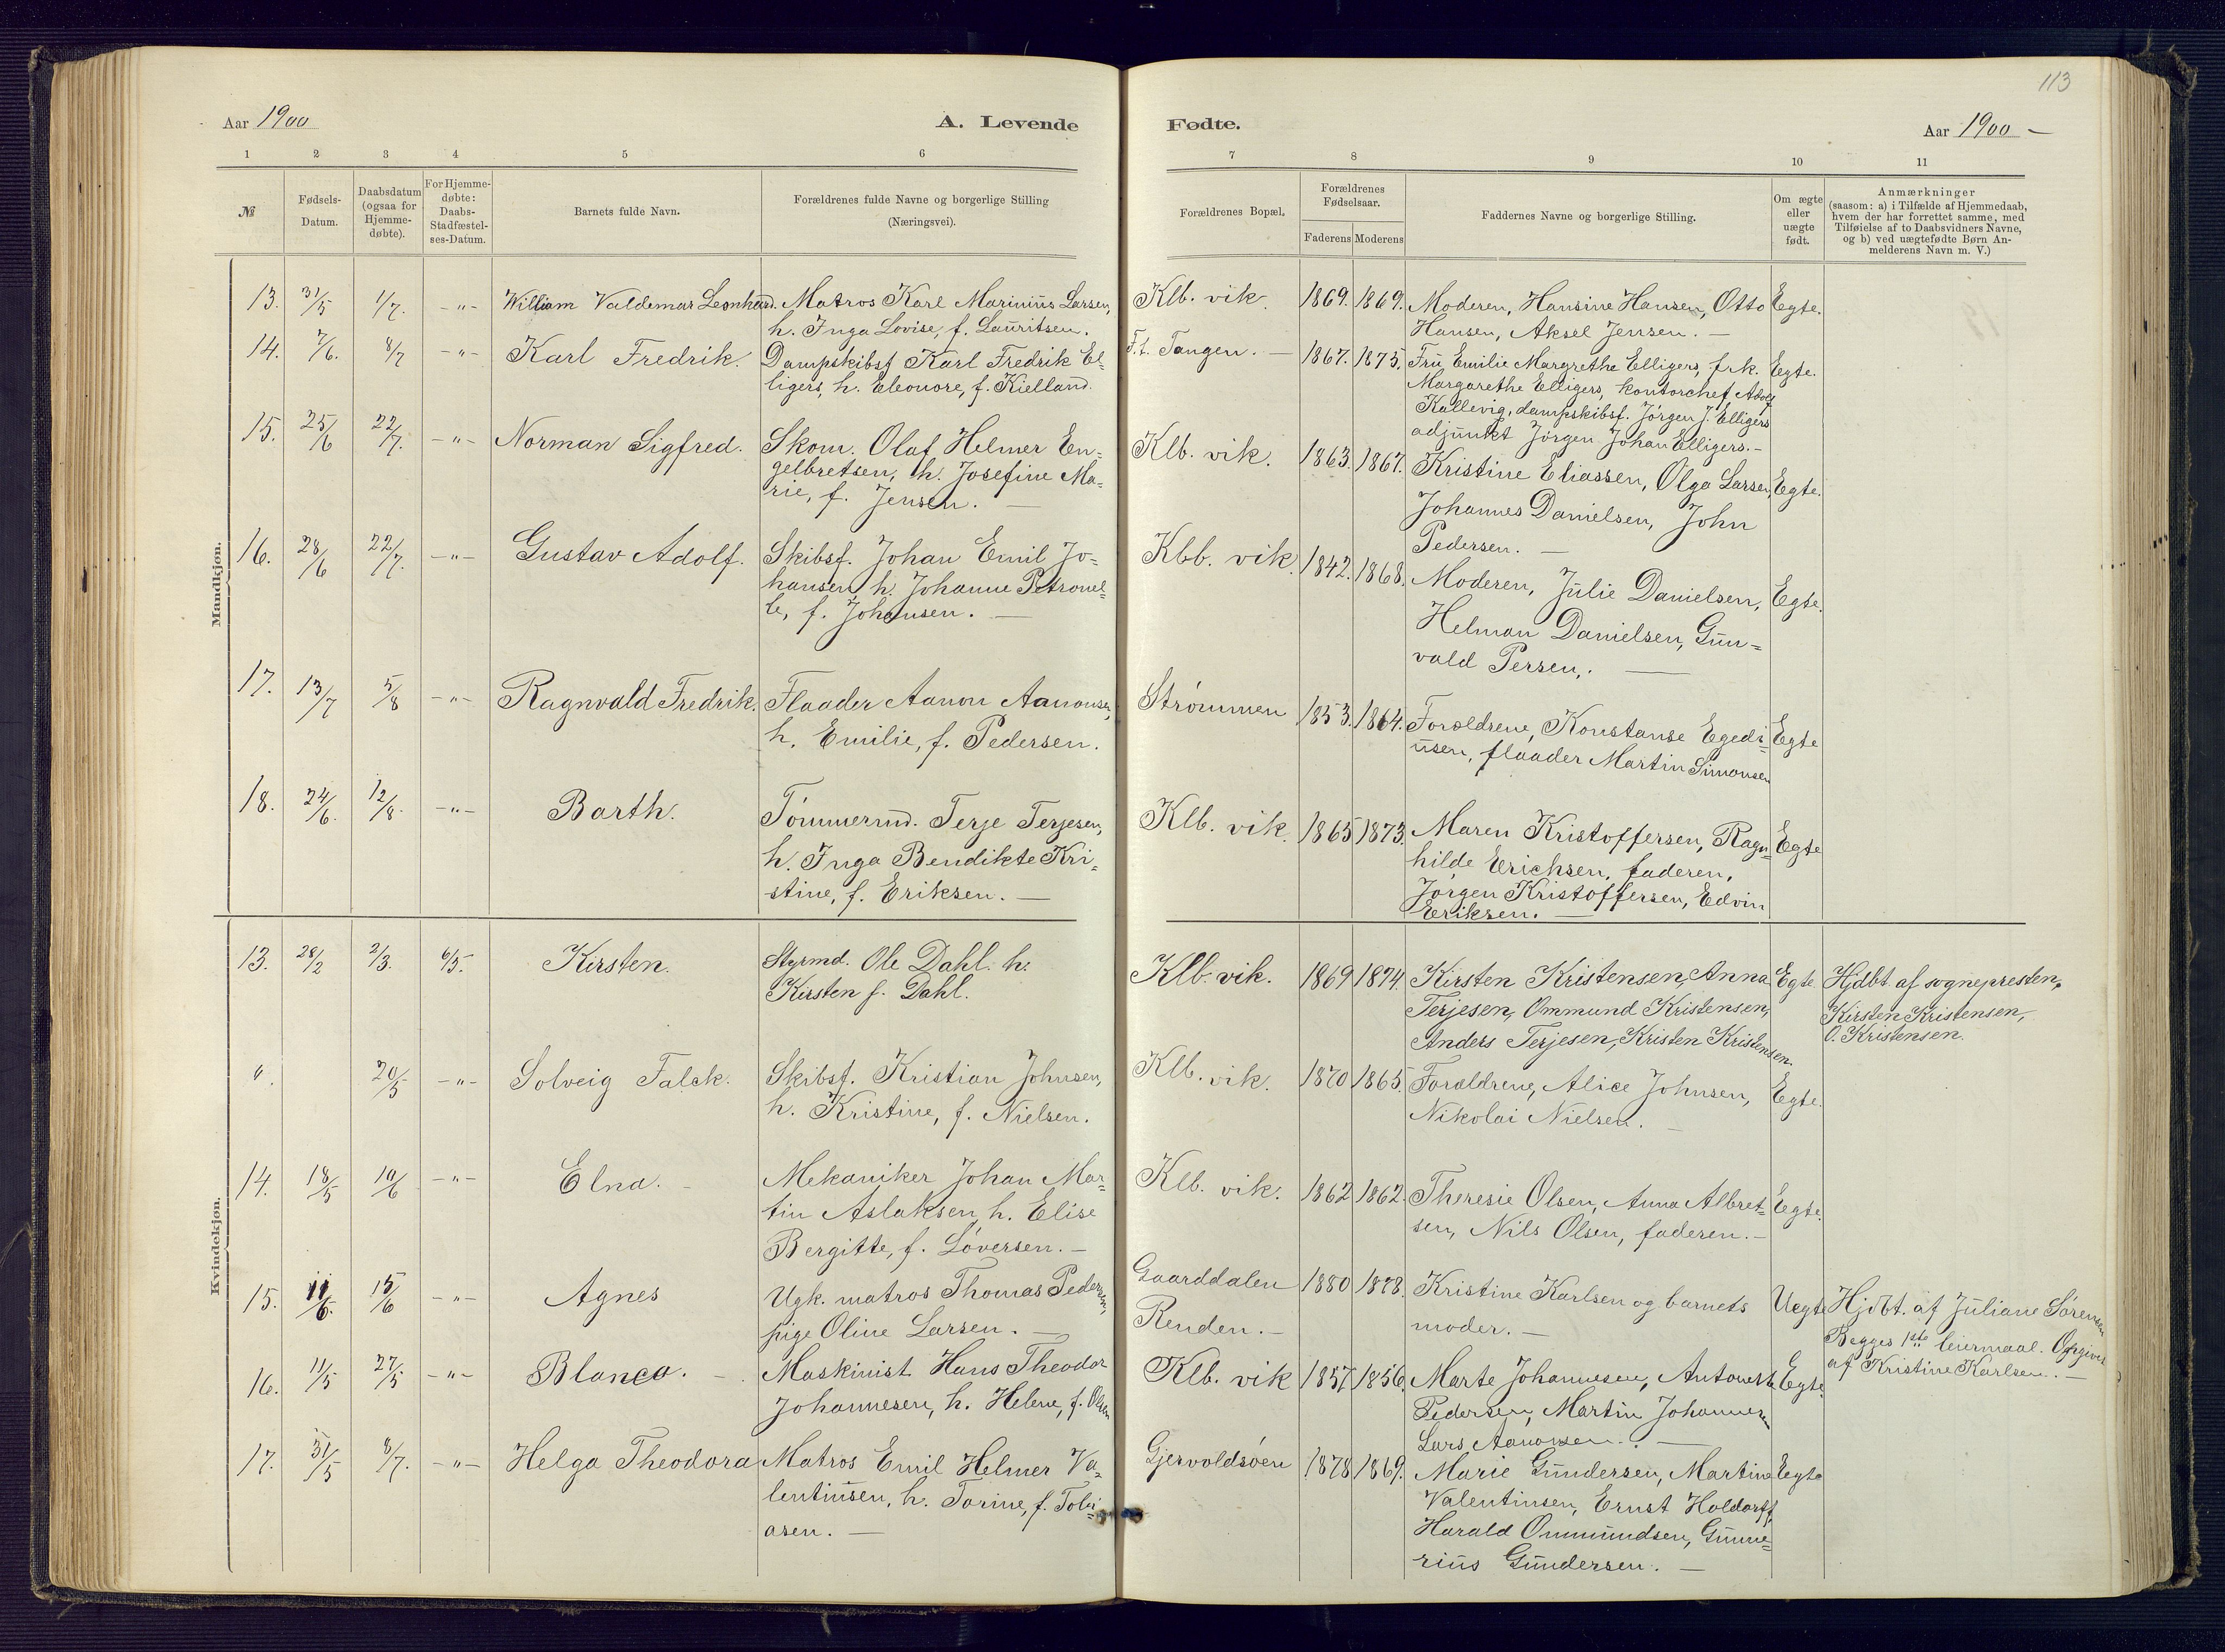 113
Aar 1900
A. Levende
Fødte.
Aar 1900 —
1 2 3 4 5 6 7 8 9 10 11
№
Fødsels-
Datum.
Daabsdatum
(ogsaa for
Hjemme-
døbte).
For Hjemme-
døbte:
Daabs-
Stadfæstel-
ses-Datum.
Barnets fulde Navn.
Forældrenes fulde Navne og borgerlige Stilling
(Næringsvei).
Forældrenes Bopæl.
Forældrenes
Fødselsaar.
Faderens Moderens
Faddernes Navne og borgerlige Stilling.
Om ægte
eller
uægte
født.
Anmærkninger
(saasom: a) i Tilfælde af Hjemmedaab,
hvem der har forrettet samme, med
Tilføielse af to Daabsvidners Navne,
og b) ved uægtefødte Børn An-
melderens Navn m. V.)
Mandkjøn.
13. 31/5 1/7. -"- William Valdemar Leonhard. Matros Karl Marinius Larsen,
h. Inga Lovise, f. Lauritsen.
Klb. vik. 1869. 1869. Moderen, Hansine Hansen, Otto Egte.
Hansen, Aksel Jensen. —
14. 7/6. 8/7 -"- Karl Fredrik. Dampskibsf Karl Fredrik El-
ligers, h. Eleonore, f. Kielland.
F.t. Tangen. — 1867. 1875. Fru Emilie Margrethe Elligers, frk. Egte.
Margarethe Elligers, kontorchef Adolf
Kallevig, dampskibsf. Jørgen J. Elligers
adjunkt Jørgen Johan Elligers. —
15. 25/6 22/7. -"- Norman Sigfred. Skom. Olaf Helmer En-
gelbretsen, h. Josefine Ma-
rie, f. Jensen. —
Klb. vik. 1863. 1867. Kristine Eliassen, Olga Larsen, Egte.
Johannes Danielsen, John
Pedersen. —
16. 28/6 22/7. -"- Gustav Adolf. Skibsf. Johan Emil Jo-
hansen, h. Johanne Petronel-
le, f. Johansen. —
Kbb. vik. 1842. 1868. Moderen, Julie Danielsen, Egte.
Helman Danielsen, Gun-
vald Persen,. —
17. 13/7 5/8 -"- Ragnvald Fredrik. Flaader Aanon Aanonsen,
h. Emilie, f. Pedersen.
Strømmen 1853. 1864. Forældrene, Konstanse Egedi- Egte
usen, flaader Martin Simonsen
18. 24/6. 12/8. -"- Barth. Tømmermd. Terje Terjesen,
h. Inga Bendikte Kri-
stine, f. Eriksen. —
Klb. vik. 1865 1873. Maren Kristoffersen, Ragn- Egte
hilde Erichsen, faderen,
Jørgen Kristoffersen, Edvin
Eriksen. —
Kvindekjøn.
13. 28/2 2/3. 6/5. Kirsten. Styrmd. Ole Dahl. h.
Kirsten f. Dahl.
Klb. vik. 1869 1874. Kirsten Kristensen, Anna Egte. Hjdbt. af sognepresten,
Terjesen, Ommund Kristensen, Kirsten Kristensen,
Anders Terjesen, Kristen Kristensen. O. Kristensen.
". 20/5 -"- Solveig Falck. Skibsf. Kristian Johnsen,
h. Kristine, f. Nielsen.
Klb. vik. 1870 1865. Forældrene, Alice Johnsen, Egte.
Nikolai Nielsen. —
14. 18/5 10/6 -"- Elna. — Mekaniker Johan Mar-
tin Aslaksen, h. Elise
Bergitte, f. Løversen. —
Klb. vik. 1862 1862. Theresie Olsen, Anna Albret- Egte.
sen, Nils Olsen, faderen. —
15. 11/6. 15/6 -"- Agnes Ugk. matros Thomas Pedersen,
pige Oline Larsen. —
Gaarddalen 1880 1878. Kristine Karlsen og barnets Uegte Hjdbt. af Juliane Sørensen
Renden. — moder. — Begges 1ste leiermaal. Opgivet
af Kristine Karlsen. —
16. 11/5 27/5 -"- Blanca. — Maskinist Hans Theodor
Johannesen, h. Helene, f. Olsen
Klb. vik 1857 1856. Marte Johannesen, Antonette Egte.
Pedersen, Martin Johannesen
Lars Aanonsen. —
17. 31/5 8/7. -"- Helga Theodora Matros Emil Helmer Va-
lentinsen, h. Torine, f. Tobi-
asen. —
Gjervoldsøen 1878 1869. Marie Gundersen, Martine Egte
Valentinsen, Ernst Holdorff,
Harald Ommundsen, Gunne-
rius Gundersen. —